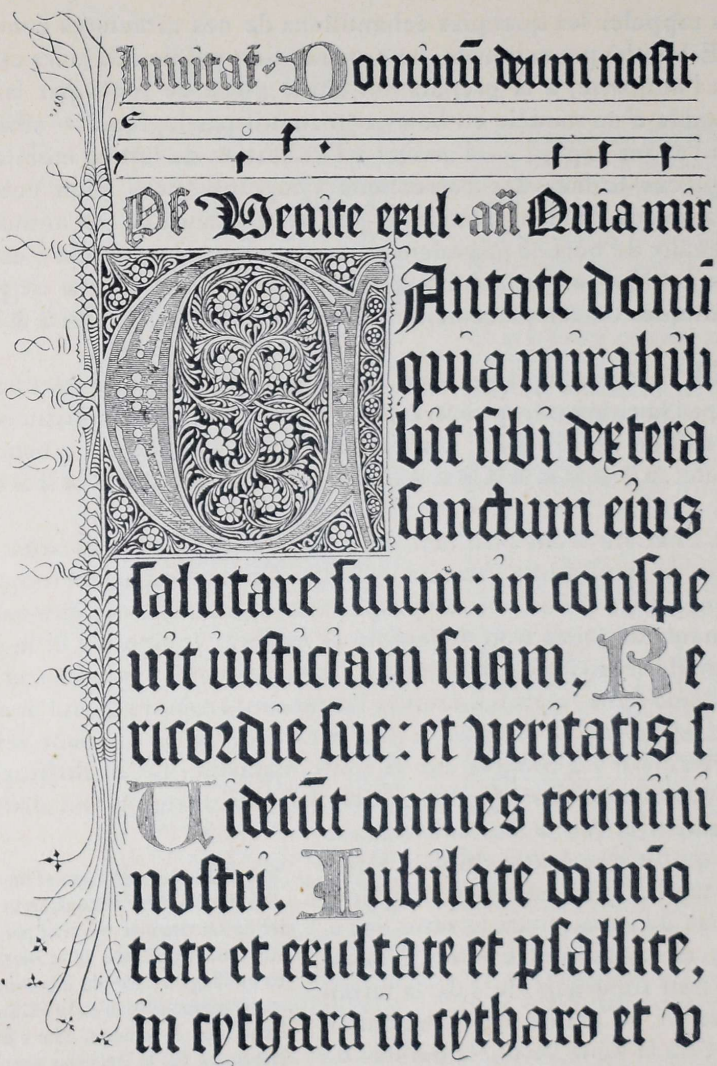 Inuitat̄. Dominū deum nostr
Ps̄ Venite exul. añ Quia mir
CAntate domi
quia mirabili
bit sibi dextera
sanctum eius
salutare suum: in conspe
uit iusticiam suam, Re
ricordie sue: et veritatis s
Uiderūt omnes termini
nostri, Iubilate domīo
tate et exultate et psallite,
in cythara in cythara et v